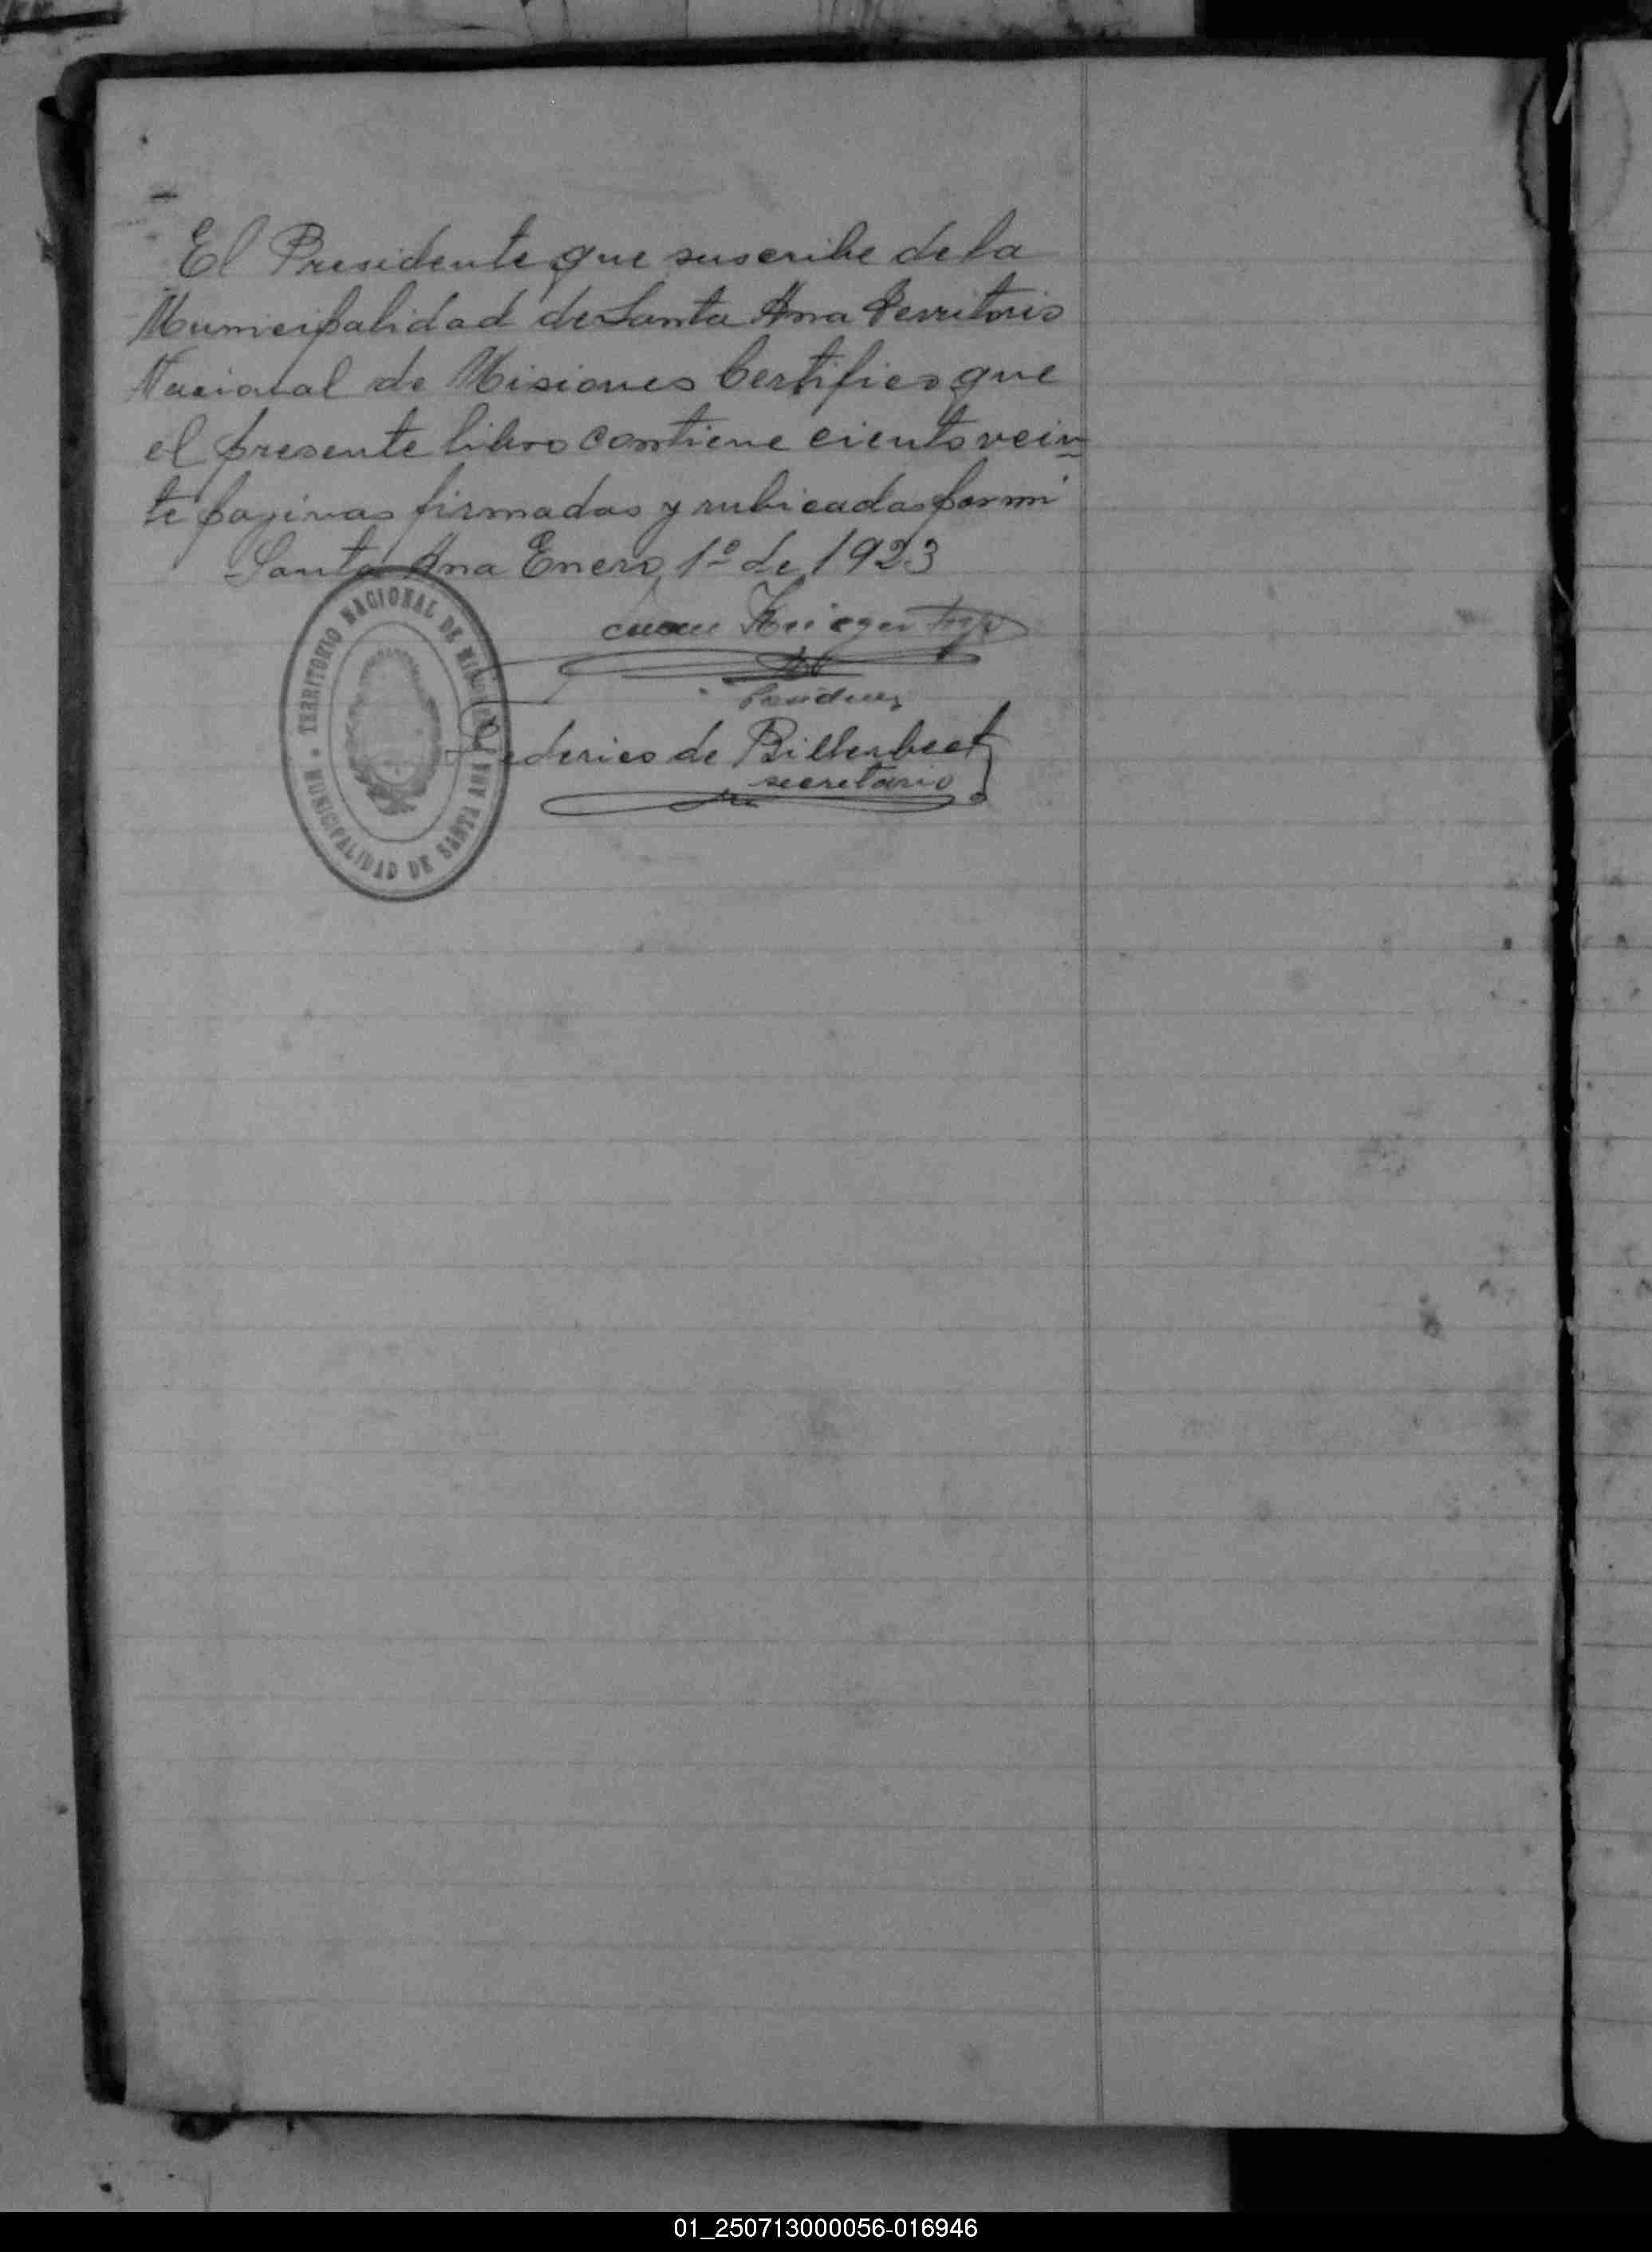 El Presidente que suscribe de la
Municipalidad de Santa Ana Territorio
Nacional de Misiones Certifico que
el presente libro contiene ciento vein
te paginas firmadas y rubicadas por mi
Santa Ana Enero 1º de 1923
Juan Krieger
Federico de
secretario
TERRITORIO NACIONAL DE MISIONES
MUNICIPALIDAD DE SANTA ANA
01_250713000056-016946